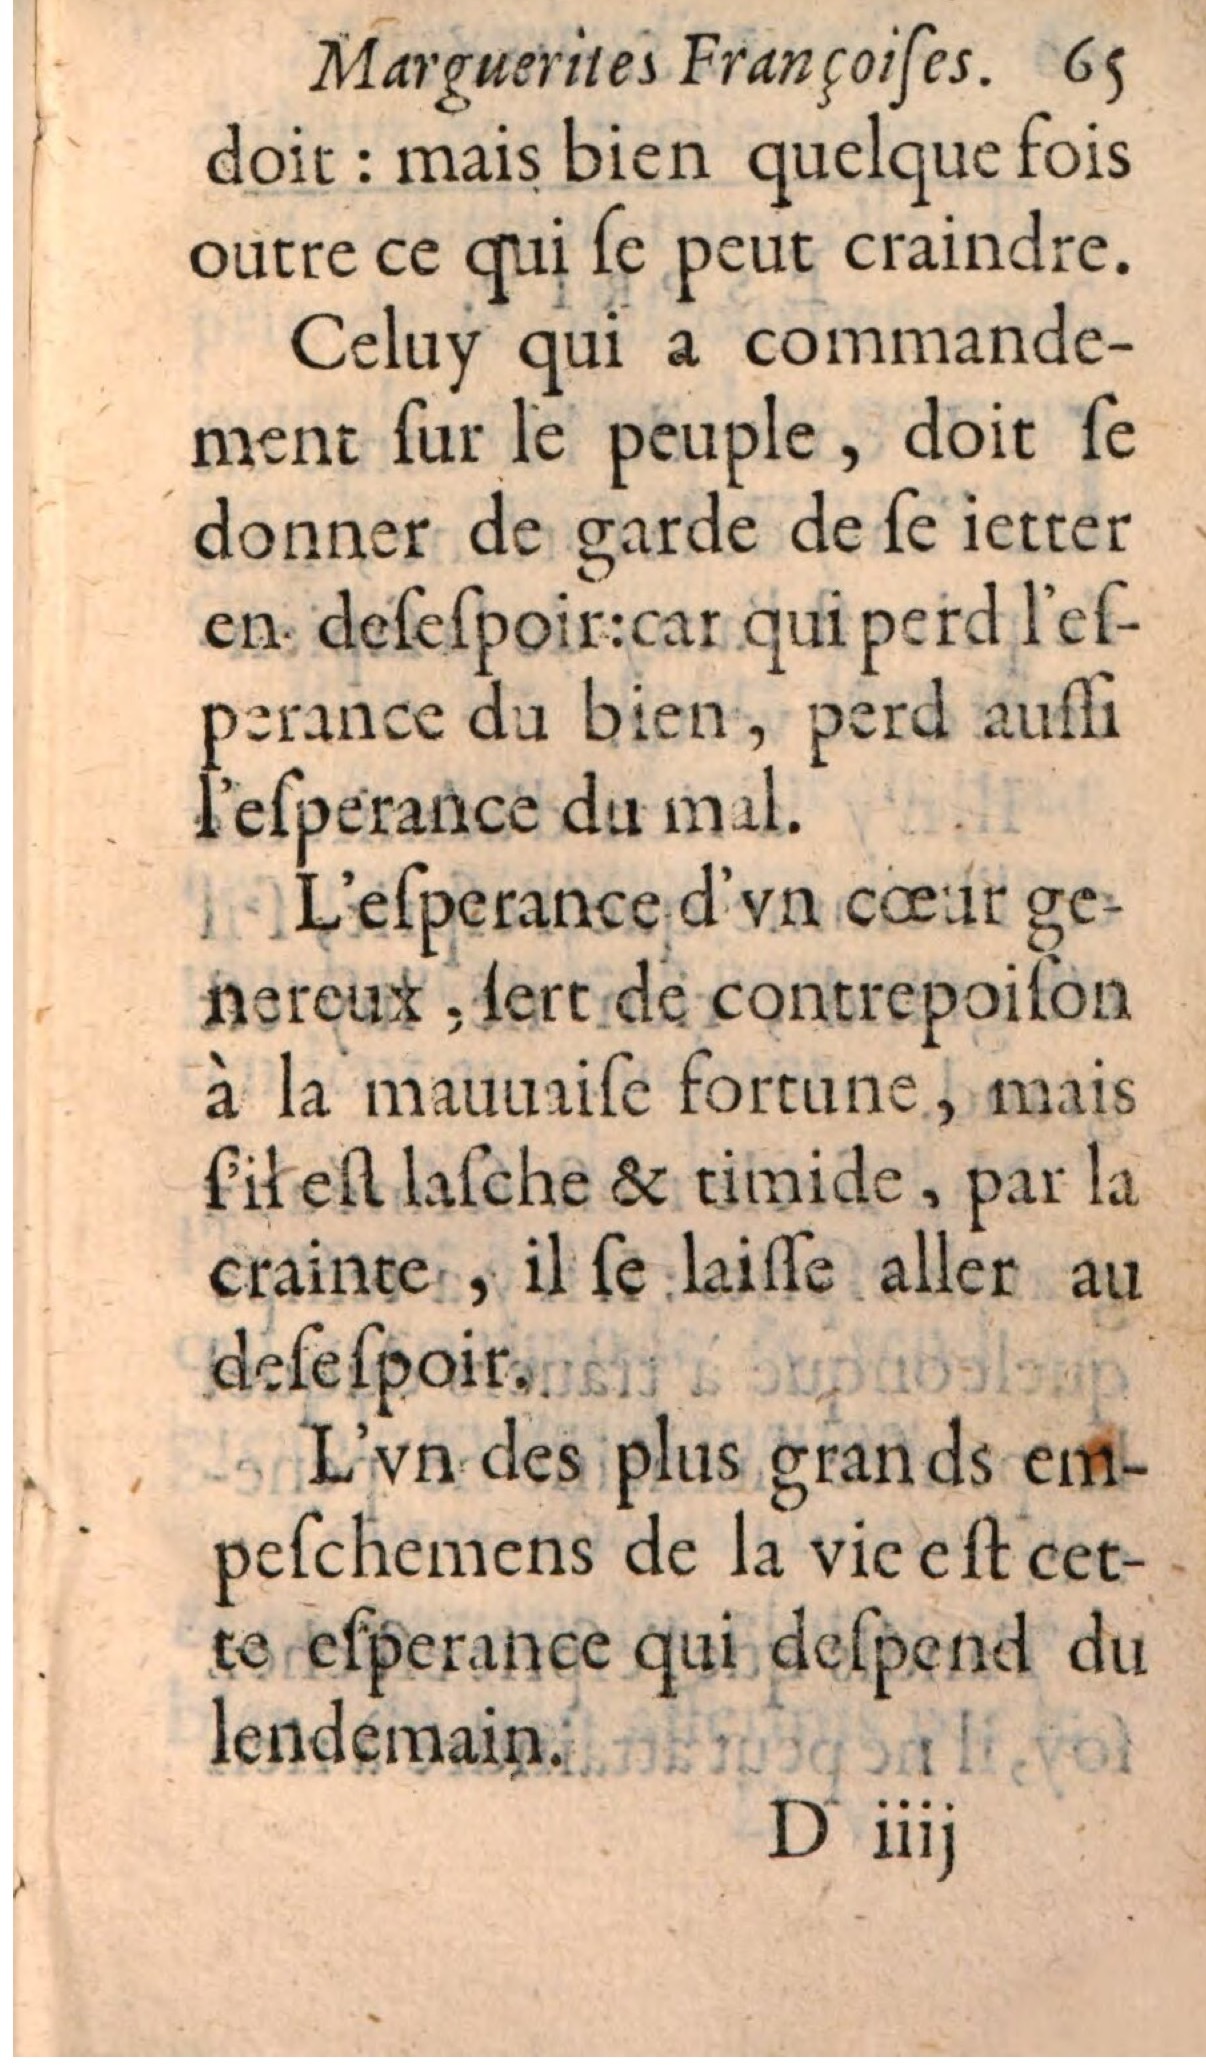 Marguerites Françoiſes. 65
doit : mais bien quelque fois
outre ce qui ſe peut craindre.
Celuy qui a commande-
ment ſur le peuple, doit ſe
donner de garde de ſe ietter
en deſeſpoir: car qui perd l'eſ-
perance du bien, perd auſſi
l'eſperance du mal.
L'eſperance d'vn cœur ge-
nereux, ſert de contrepoiſon
à la mauuaiſe fortune, mais
ſ'il eſt laſche & timide, par la
crainte, il ſe laiſſe aller au
deſeſpoir.
L'vn des plus grands em-
peſchemens de la vie eſt cet-
te eſperance qui deſpend du
lendemain.
D iiij